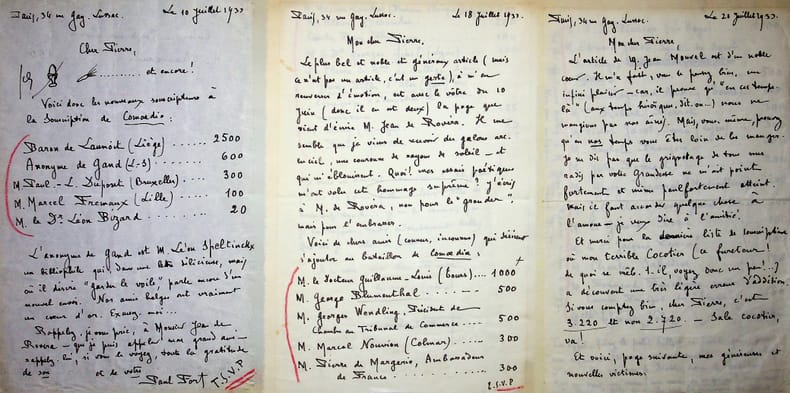 Paris, 34 rue Gay-Lussac. Le 10 Juillet 1933.
Cher Pierre,
et encore!
Voici donc les nouveaux souscripteurs à
la Souscription de Comoedia:
Baron de Launoit (Liège) 2500
Anonyme de Gand (L-S) 600
M. Paul-L. Dupont (Bruxelles) 300
M. Marcel Fremaux (Lille) 100
M. le Dr Léon Bizard 20
L'anonyme de Gand est M. Léon Speltinckx
un bibliophile qui, dans une lettre délicieuse, mais
où il disait "garder le voile" parle encore d'un
nouvel envoi. Nos amis belges ont vraiment
un cœur d'or. Excusez-moi...
Rappelez, je vous prie, à Monsieur Jean de
Rovera - que je puis appeler un grand ami -
rappelez-lui, si vous le voyez, toute la gratitude
de son et de votre
Paul Fort
T.S.V.P
Paris, 34 rue Gay-Lussac. Le 18 Juillet 1933.
Mon cher Pierre,
Le plus bel et noble et généreux article (mais
ce n'est pas un article, c'est un geste), à m'en
renverser d'émotion, est avec le vôtre du 10
Juin (donc il en est deux) la page que
vient d'écrire M. Jean de Rovera. Il me
semble que je viens de recevoir des galons arc-
en-ciel, une couronne de rayons de soleil - et
qui m'éblouirent. Quoi! mes essais poétiques
m'ont valu cet hommage suprême? J'écris
à M. de Rovera, non pour le "gronder",
mais pour l'embrasser.
Voici de chers amis (connus, inconnus) qui désirent
s'ajouter au bataillon de Comoedia:
M. le docteur Guillaume-Louis (Tours) 1000
M. George Blumenthal 500
M. Georges Wendling, Président de
Chambre au Tribunal de Commerce 500
M. Marcel Nouvion (Colmar) 300
M. Pierre de Margerie, Ambassadeur
de France 300
T.S.V.P
Paris, 34 rue Gay-Lussac. Le 21 Juillet 1933.
Mon cher Pierre,
L'article de M. Jean Nouvel est d'un noble
cœur. Il m'a fait, vous le pensez bien, un
infini plaisir - car, il pense qu'"en ces temps-
là" (aux temps héroïques, dit-on) nous ne
mangions pas nos amis. Mais, vous-même, prouvez
qu'en nos temps vous êtes loin de les manger.
Je ne dis pas que le grignotage de tous mes
radis par votre Grandesse ne m'ait point
fortement et même paulfortement atteint.
Mais il faut accorder quelque chose à
l'amour - je veux dire à l'amitié.
Et merci pour la dernière liste de souscription
où mon terrible Cocotier (ce fureteur!
de quoi se mêle-t-il, voyez donc un peu!...)
a découvert une très légère erreur d'addition.
Si vous comptez bien, cher Pierre, c'est
3.220 et non 2.720. - Sale cocotier,
va!
Et voici, page suivante, mes généreuses et
nouvelles victimes: